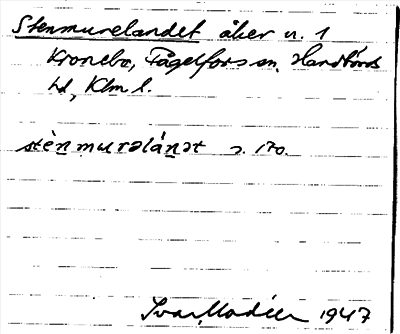 Stenmurelandet åker n. 1
Kronebo, Fågelfors sn, Handbörds
hd, Klm l.
stènmurəlánət s. 170.
Ivar Modéer 1947